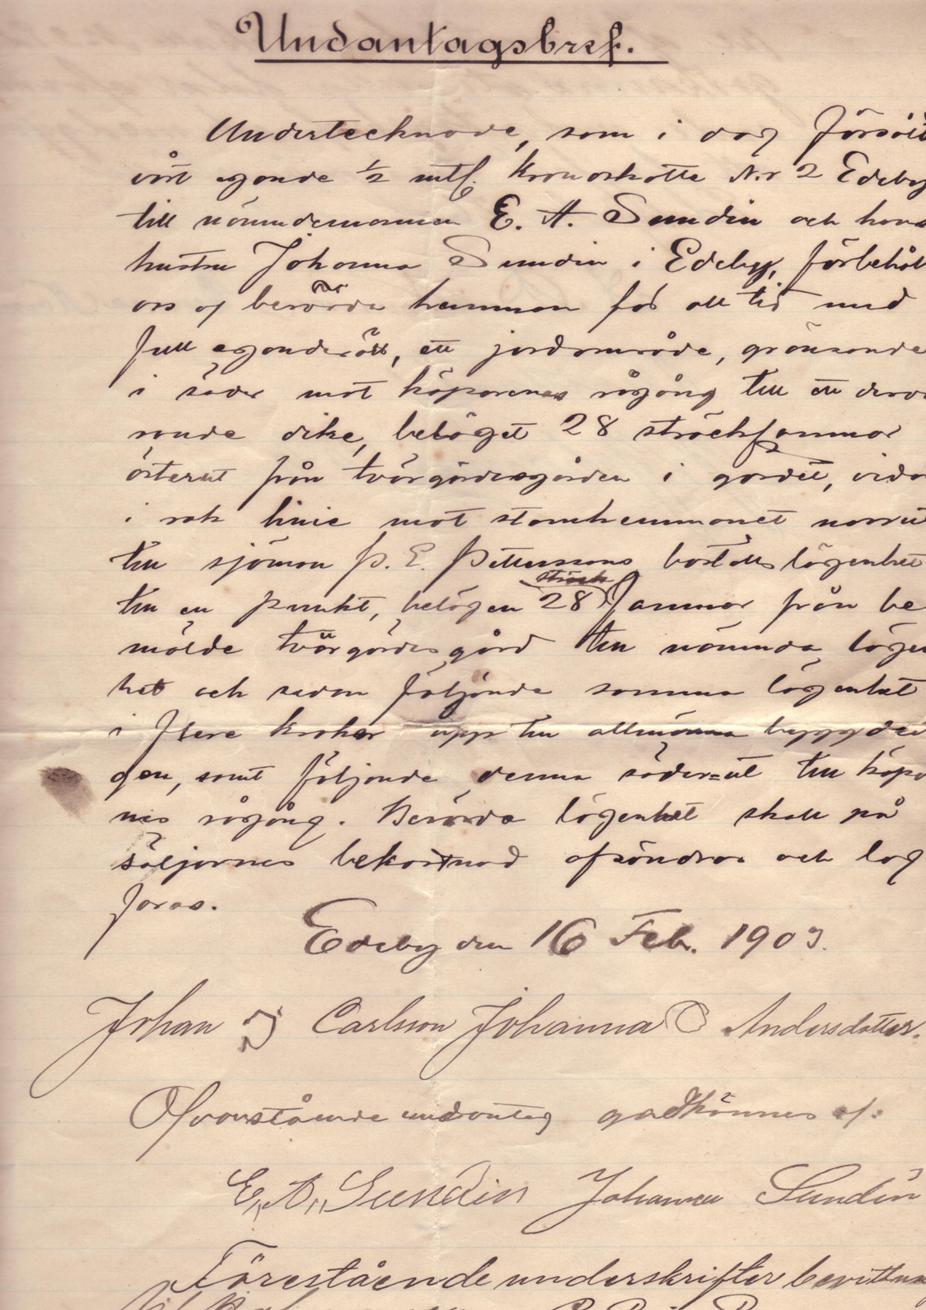 Undantagsbref.
Undertecknade, som i dag försålt
vårt egande 1/2 mtl. Kronoskatte N:r 2 Edeby
till nämndemannen E. A. Sundin och hans
hustru Johanna Sundin i Edeby, förbehåll
oss af berörda hemman för all tid med
full eganderätt, ett jordområde, gränsande
i söder mot köparenes rågång till ett derva
rande dike, beläget 28 sträckfamnar
österut från tvärgärdesgården i gärdet, vidare
i rak linie mot stamhemmanet norrut
till sjöman P. E. Petterssons bostads lägenhet
till en punkt, belägen 28 sträck famnar från be
mälde tvärgärdesgård till nämnda lägen
het och sedan följande samma lägenhet
i flere krokar upp till allmänna byggdevä
gen, samt följande denna söder=ut till köpa
nes rågång. Berörda lägenhet skall på
säljarnes bekostnad afsöndras och lag
faras.
Edeby den 16 Feb. 1903.
Johan Carlsson Johanna Andersdotter.
Ofvanstående undantag godkännes af:
E. A. Sundin Johanna Sundin
Förestående underskrifter bevittna